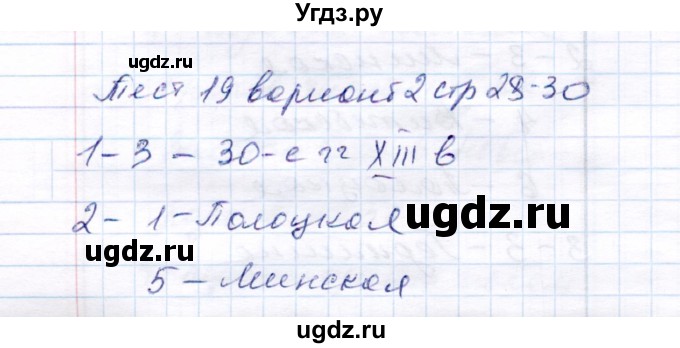 Угдз.ру
ugdz.ru ugdz.ru
Тест 19 вариант 2 стр 28-30
1-3 - 30-е гг XIII в
2- 1-Полоцкая ugdz.ru
ugdz.ru
5 - Минская
ugdz.ru